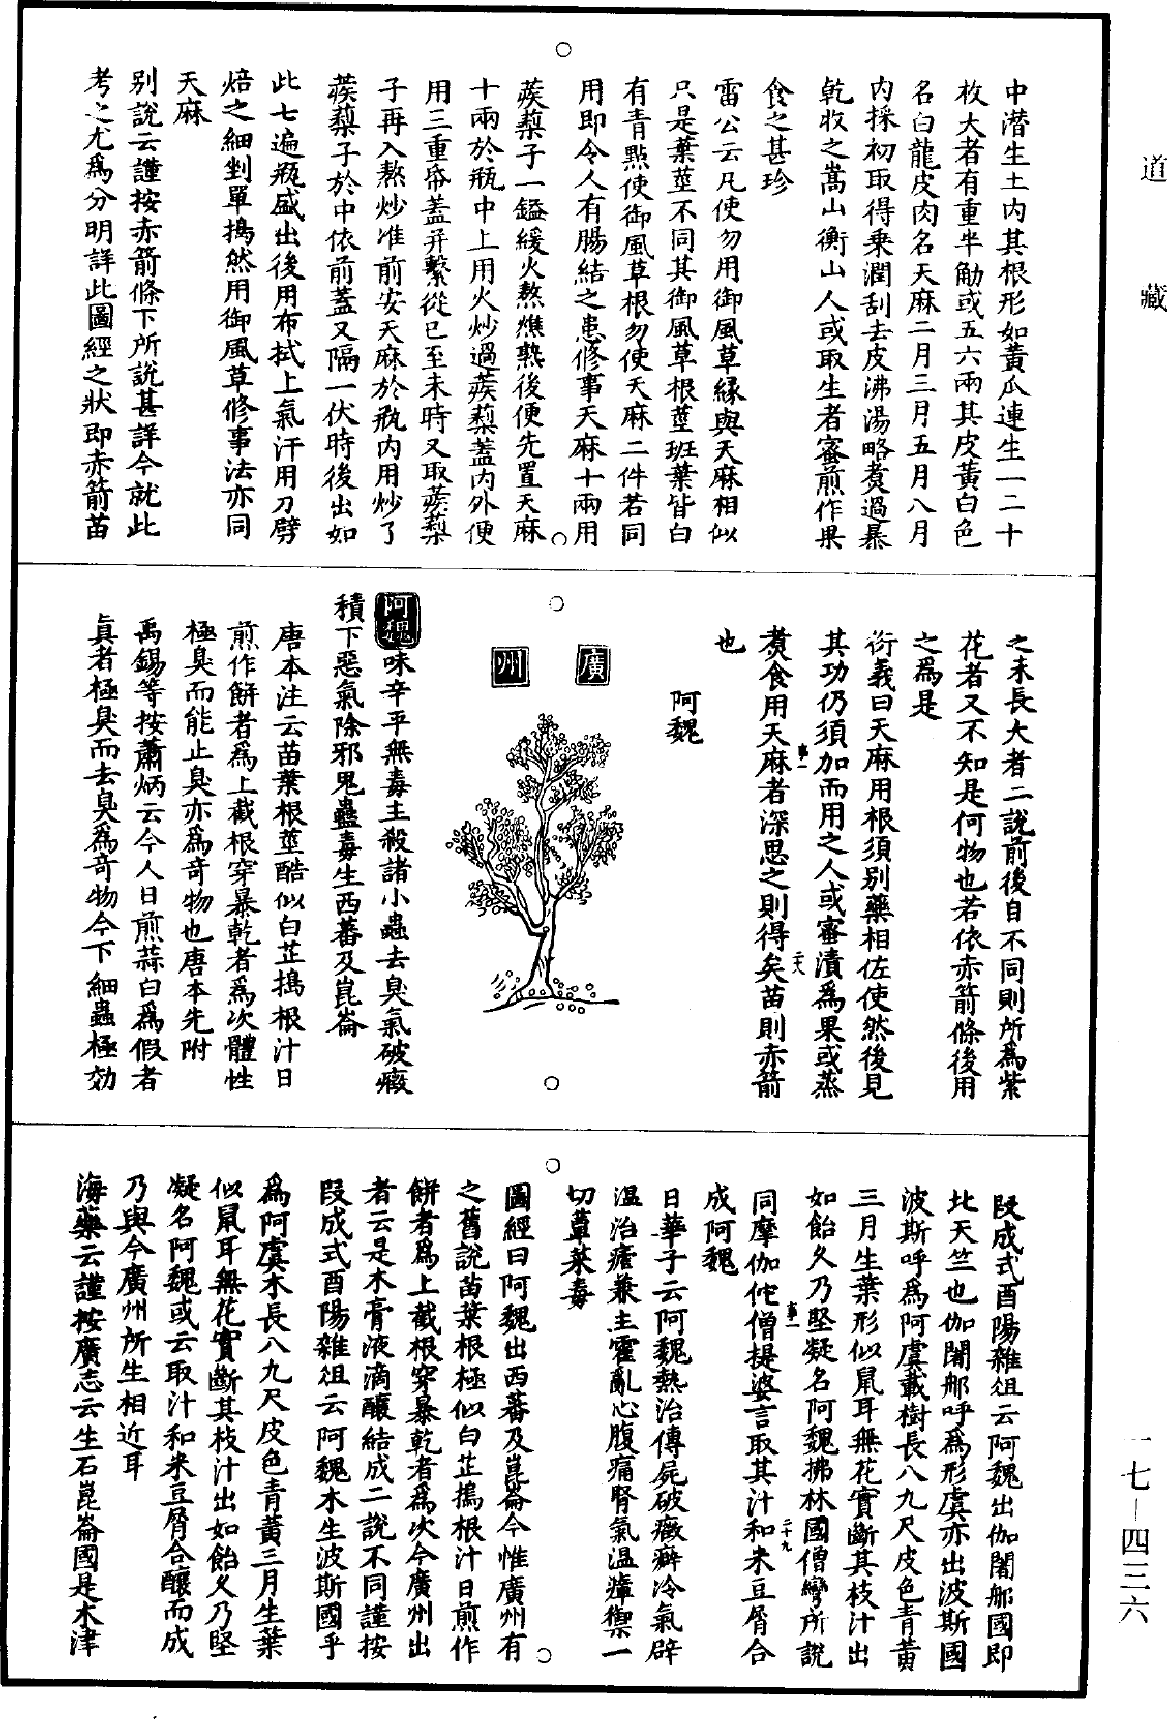 道藏
中潜生土内其根形如黃瓜連生一二十
枚大者有重半觔或五六兩其皮黃白色
名白龍皮肉名天麻二月三月五月八月
内採初取得乗潤刮去皮沸湯略煑過暴
乾收之嵩山衡山人或取生者蜜煎作果
食之甚珍
雷公云凡使勿用御風草緣與天麻相似
只是葉莖不同其御風草根莖班葉皆白
有青點使御風草根勿使天麻二件若同
用即令人有腸結之患修事天麻十兩用
蒺蔾子一鎰緩火熬燋熟後便先置天麻
十兩於瓶中上用火炒過蒺蔾蓋内外便
用三重帋蓋并繫從巳至未時又取蒺蔾
子再入熬炒准前安天麻於瓶内用炒了
蒺蔾子於中依前蓋又隔一伏時後出如
此七遍瓶盛出後用布拭上氣汗用刀劈
焙之細剉單搗然用御風草修事法亦同
天麻
别說云謹按赤箭條下所說甚詳今就此
考之尤爲分明詳此圖經之狀即赤箭苗
之未長大者二說前後自不同則所爲紫
花者又不知是何物也若依赤箭條後用
之爲是
衍義曰天麻用根須别藥相佐使然後見
其功仍須加而用之人或蜜漬爲果或蒸
煑食用天麻者深思之則得矣苗則赤箭
也
阿魏
廣州
阿魏味辛平無毒主殺諸小蟲去臭氣破癥
積下惡氣除邪鬼蠱毒生西蕃及崑崙
唐本注云苗葉根莖酷似白芷搗根汁日
煎作餅者爲上截根穿暴乾者爲次體性
極臭而能止臭亦爲奇物也唐本先附
禹錫等按蕭炳云今人日煎蒜白爲假者
眞者極臭而去臭爲奇物今下細蟲極効
段成式酉陽雜俎云阿魏出伽闍郍國即
北天竺也伽闍郍呼爲形虞亦出波斯國
波斯呼爲阿虞截樹長八九尺皮色青黃
三月生葉形似鼠耳無花實斷其枝汁出
如飴久乃堅凝名阿魏拂林國僧彎所說
同摩伽佗僧提婆言取其汁和米豆屑合
成阿魏
日華子云阿魏熱治傳屍破癥癖冷氣辟
温治瘧兼主霍亂心腹痛腎氣温瘴禦一
切蕈菜毒
圖經曰阿魏出西蕃及崑崙今惟廣州有
之舊說苗葉根極似白芷搗根汁日煎作
餅者爲上截根穿暴乾者爲次今廣州出
者云是木膏液滴釀結成二說不同謹按
段成式酉陽雜俎云阿魏木生波斯國乎
爲阿虞木長八九尺皮色青黃三月生葉
似鼠耳無花實斷其枝汁出如飴久乃堅
凝名阿魏或云取汁和米豆屑合釀而成
乃與今廣州所生相近耳
海藥云謹按廣志云生石崑崙國是木津
一七—四三六